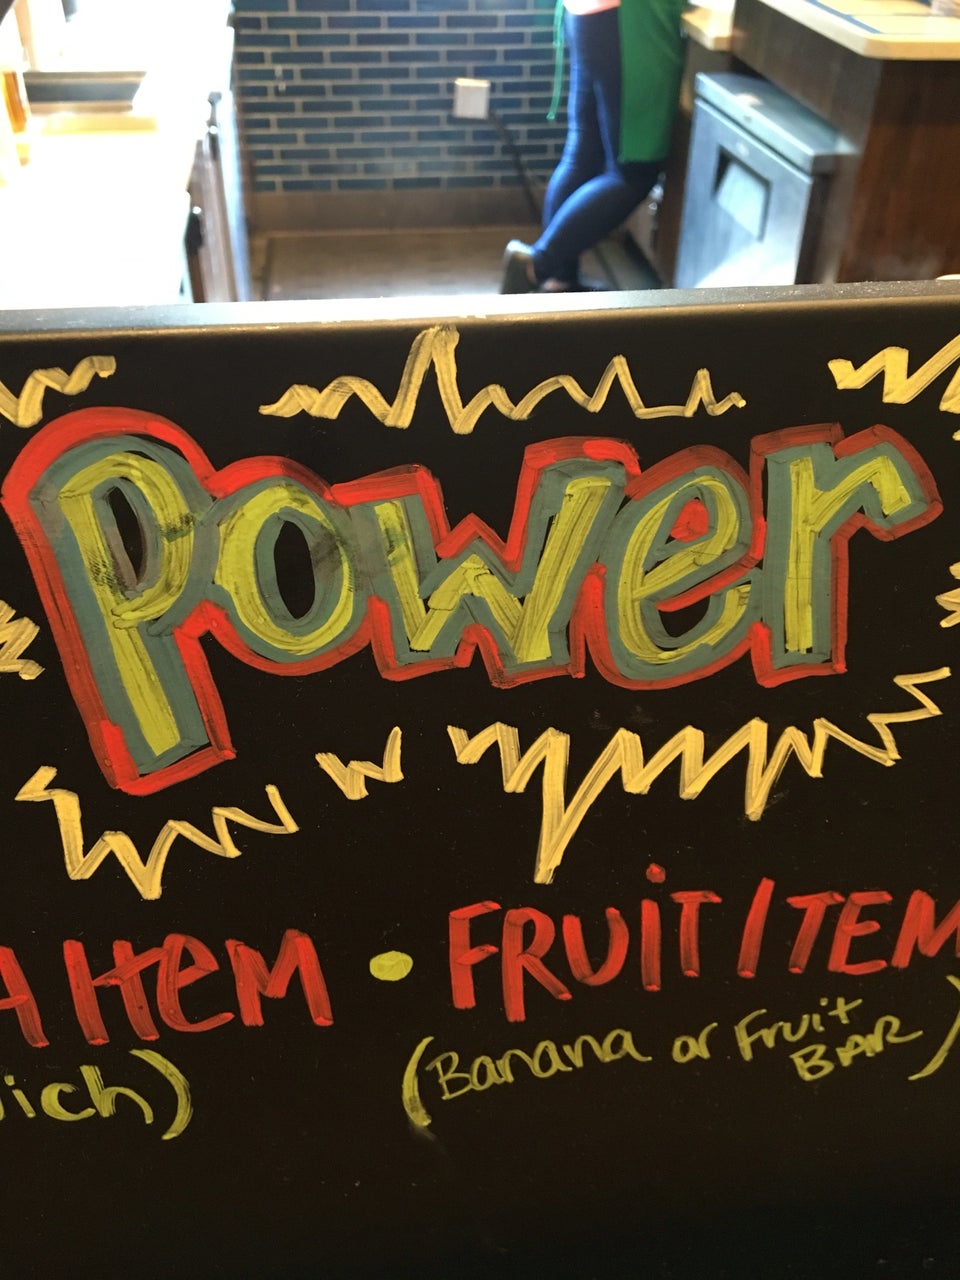 Power
A Item • FRUIT/ITEM
(Banana or Fruit
BAR)